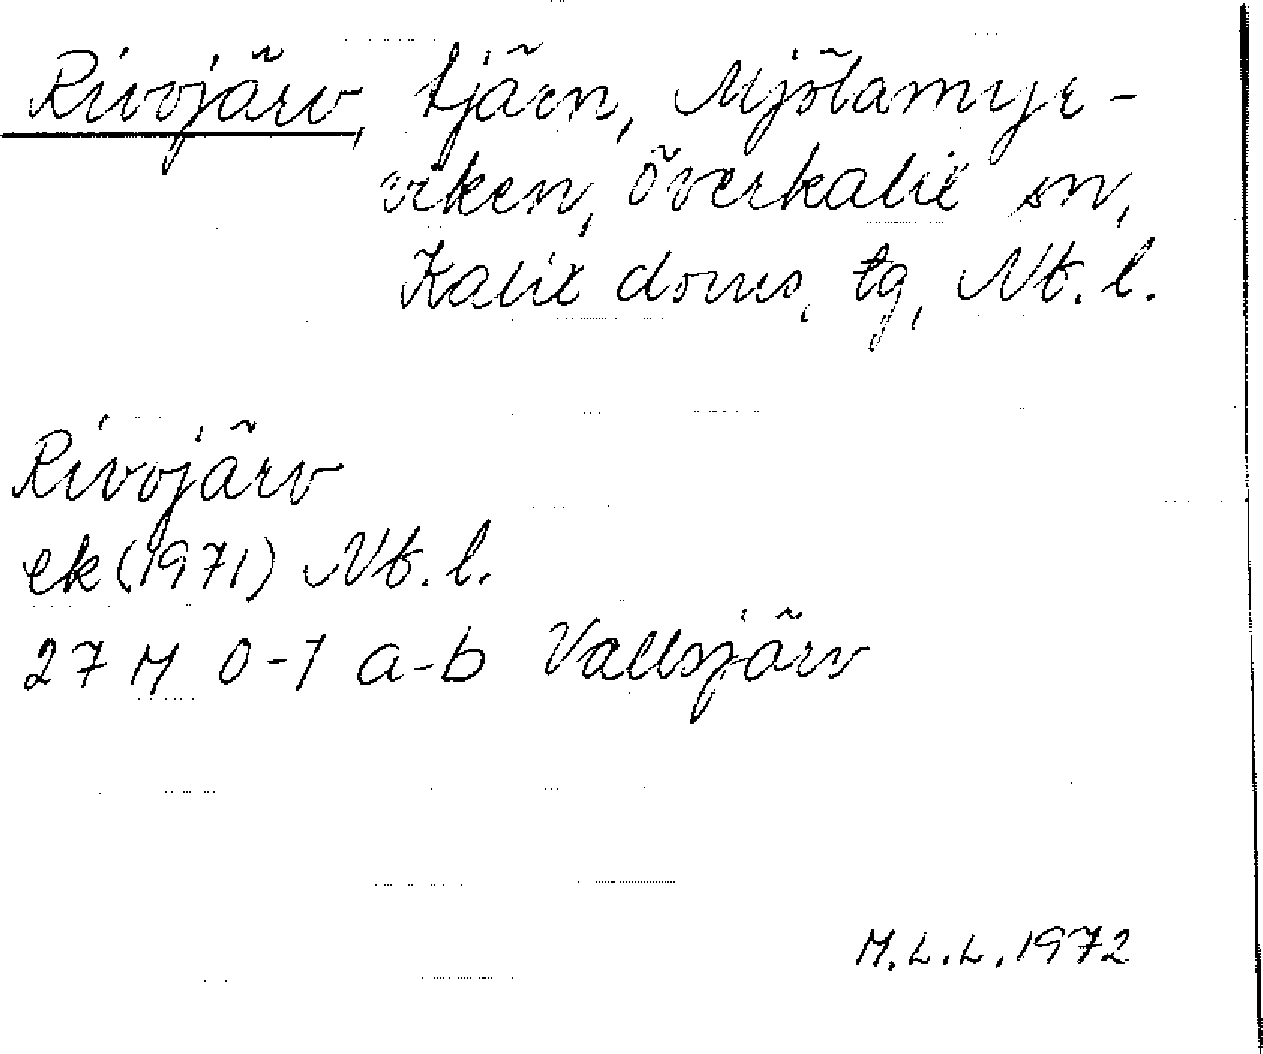 Rivojärv, tjärn, Mjölamyr-
viken, Överkalix sn,
Kalix doms. tg, Nb. l.
Rivojärv
ek (1971) Nb. l.
27 M 0-1 a-b Vallsjärv
M.L.L. 1972